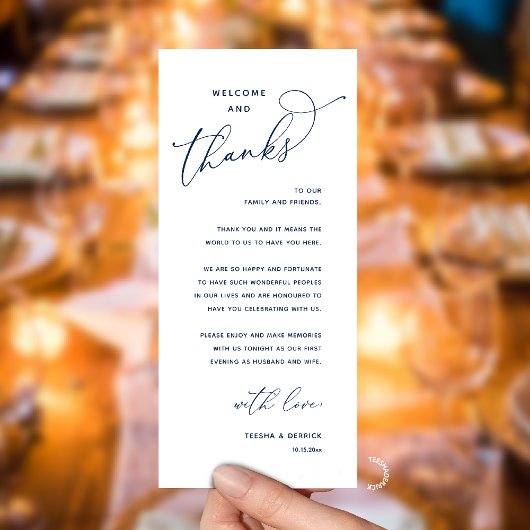 WELCOME
AND
thanks
TO OUR
FAMILY AND FRIENDS,
THANK YOU AND IT MEANS THE
WORLD TO US TO HAVE YOU HERE.
WE ARE SO HAPPY AND FORTUNATE
TO HAVE SUCH WONDERFUL PEOPLES
IN OUR LIVES AND ARE HONOURED TO
HAVE YOU CELEBRATING WITH US.
PLEASE ENJOY AND MAKE MEMORIES
WITH US TONIGHT AS OUR FIRST
EVENING AS HUSBAND AND WIFE.
with love,
TEESHA & DERRICK
10.15.20xx
TEESHADERRICK